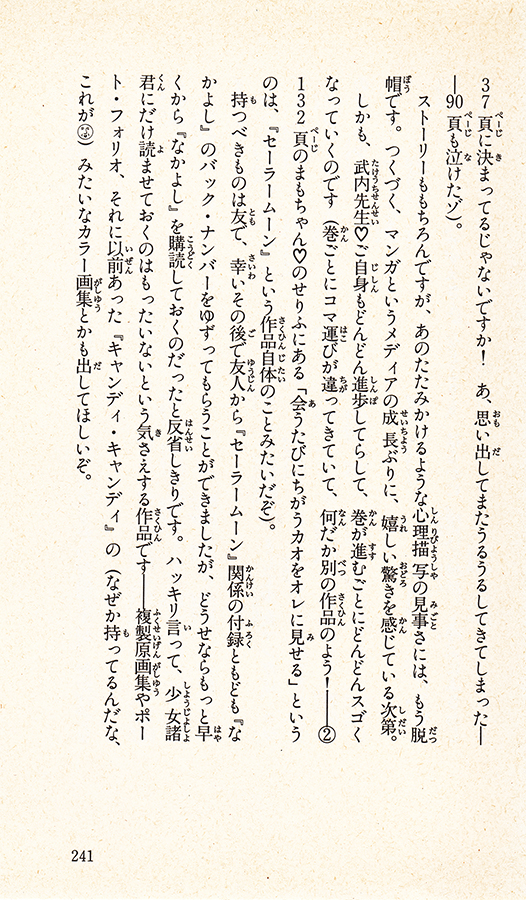 37頁に決まってるじゃないですか！　あ、思い出してまたうるうるしてきてしまった―
―90頁も泣けたゾ）。
　ストーリーももちろんですが、あのたたみかけるような心理描写の見事さには、もう脱
帽です。つくづく、マンガというメディアの成長ぶりに、嬉しい驚きを感じている次第。
　しかも、武内先生♡ご自身もどんどん進歩してらして、巻が進むごとにどんどんスゴく
なっていくのです（巻ごとにコマ運びが違ってきていて、何だか別の作品のよう！――②
132頁のまもちゃん♡のせりふにある「会うたびにちがうカオをオレに見せる」という
のは、『セーラームーン』という作品自体のことみたいだぞ）。
　持つべきものは友で、幸いその後で友人から『セーラームーン』関係の付録ともども『な
かよし』のバック・ナンバーをゆずってもらうことができましたが、どうせならもっと早
くから『なかよし』を購読しておくのだったと反省しきりです。ハッキリ言って、少女諸
君にだけ読ませておくのはもったいないという気さえする作品です――複製原画集やポー
ト・フォリオ、それに以前あった『キャンディ・キャンディ』の（なぜか持ってるんだな、
これが）みたいなカラー画集とかも出してほしいぞ。
241